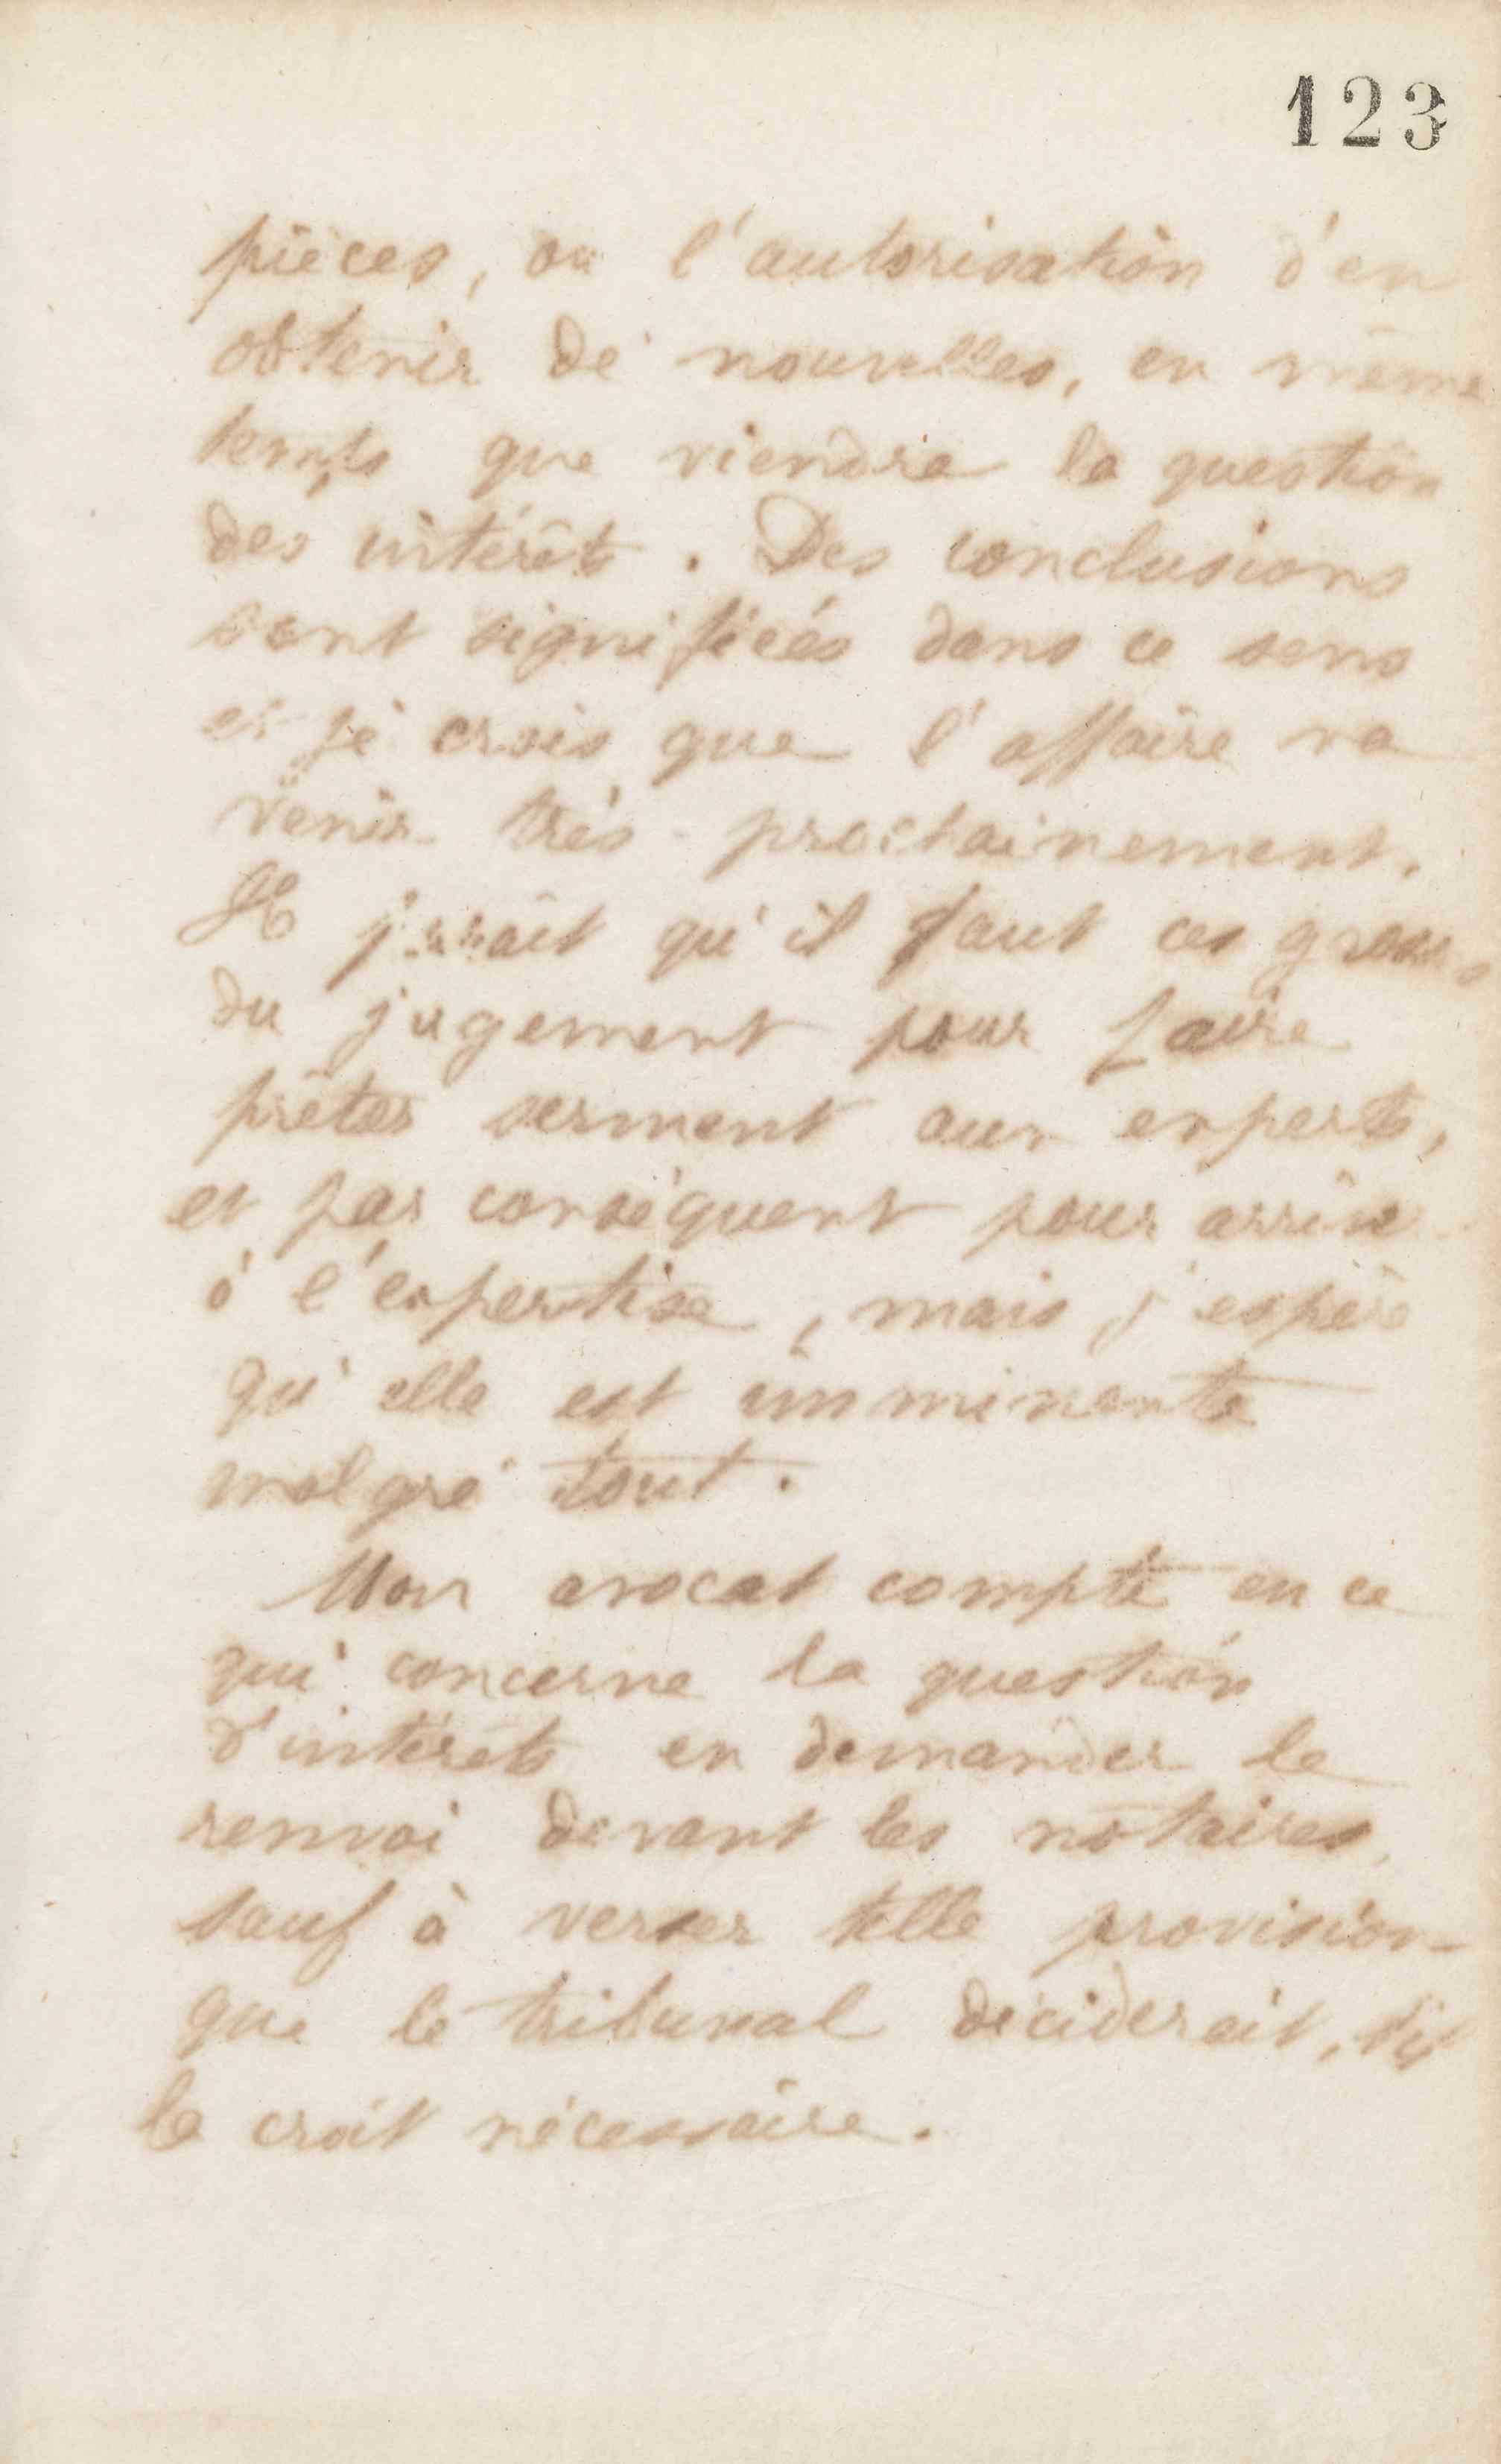 123
pièces, ou l'autorisation d'en
obtenir de nouvelles, en même
temps que viendra la question
des intérêts. Des conclusions
sont signifiées dans ce sens
et je crois que l'affaire va
venir très-prochainement.
Il paraît qu'il faut ces grosses
du jugement pour faire
prêter serment aux experts,
et par conséquent pour arriver
à l'expertise, mais j'espère
qu'elle est imminente
malgré tout.
Mon avocat compte en ce
qui concerne la question
d'intérêts en demander le
renvoi devant les notaires,
sauf à verser telle provision
que le tribunal déciderait, s'il
le croit nécessaire.